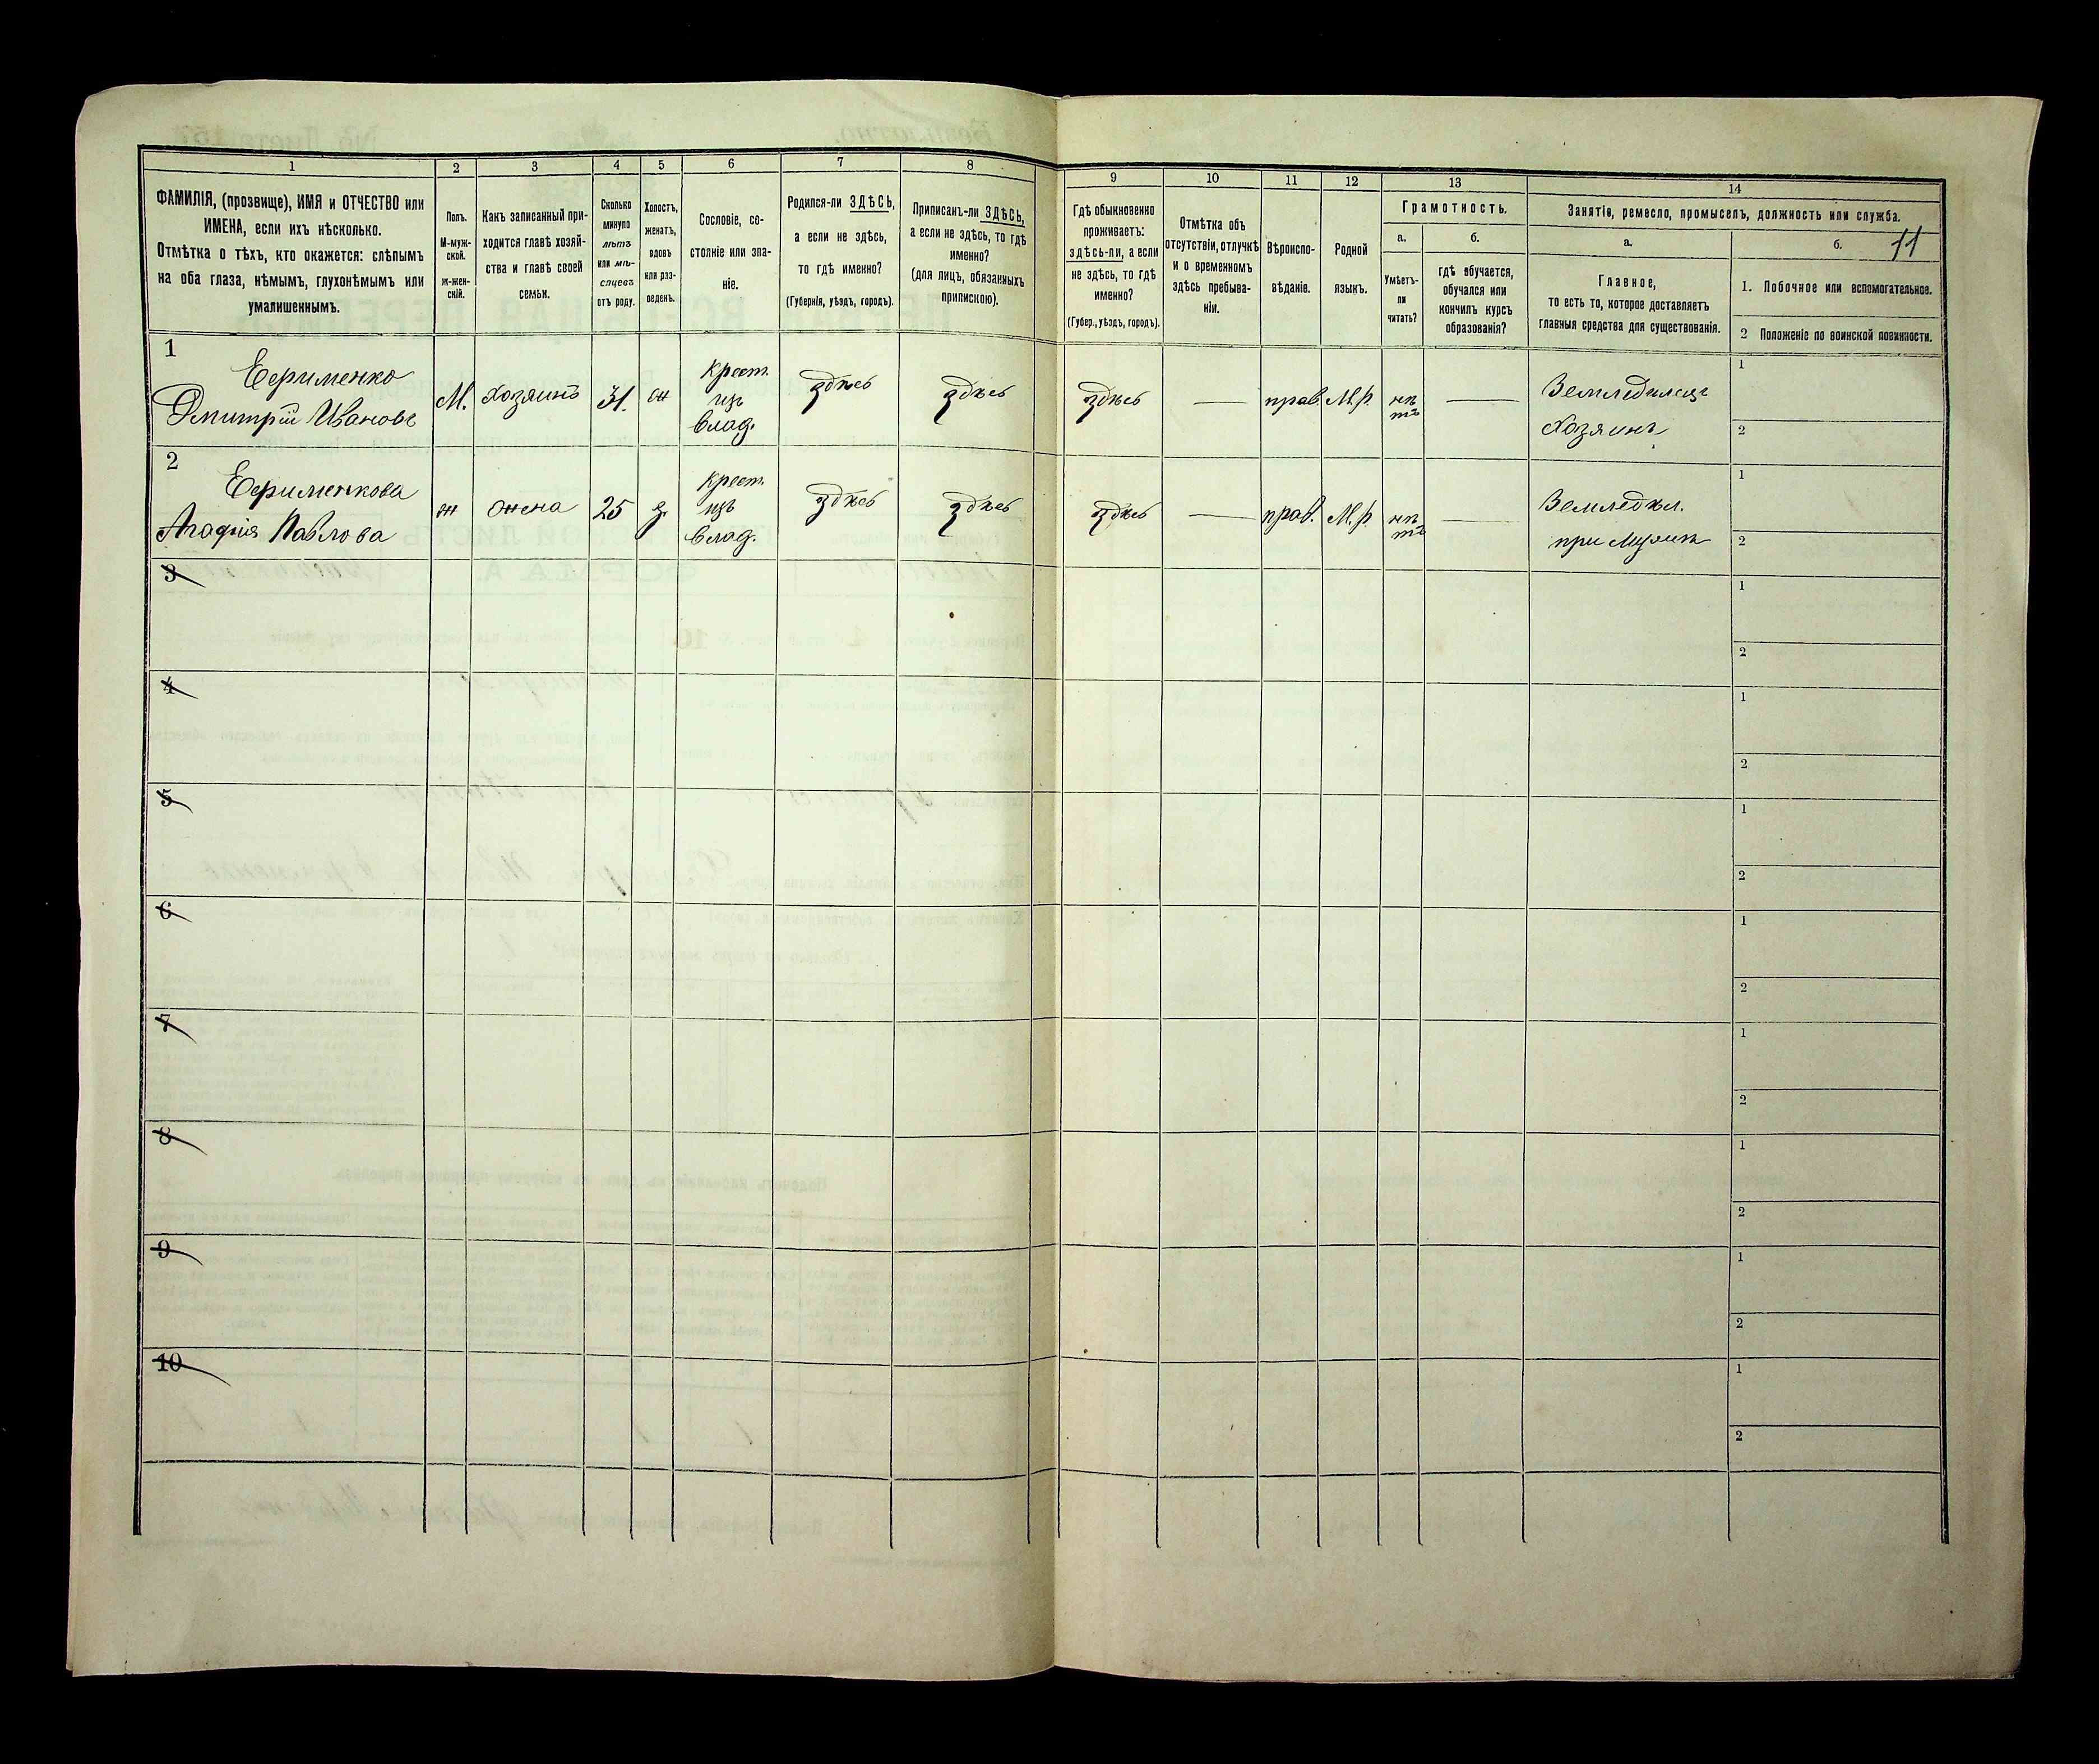 1 2 3 4 5 6 7 8 9 10 11 12 13 14
ФАМИЛІЯ, (прозвище), ИМЯ и ОТЧЕСТВО или
ИМЕНА, если ихъ нѣсколько.
Отмѣтка о тѣхъ, кто окажется: слѣпымъ
на оба глаза, нѣмымъ, глухонѣмымъ или
умалишеннымъ.
Полъ.
М-муж-
ской.
ж-жен-
скій.
Какъ записанный при-
ходится главѣ хозяй-
ства и главѣ своей
семьи.
Сколько
минуло
лѣтъ
или мѣ-
сяцевъ
отъ роду.
Холостъ,
женатъ,
вдовъ
или раз-
веденъ.
Сословіе, со-
стояніе или зва-
ніе.
Родился-ли ЗДѢСЬ,
а если не здѣсь,
то гдѣ именно?
(Губернія, уѣздъ, городъ).
Приписанъ-ли ЗДѢСЬ,
а если не здѣсь, то гдѣ
именно?
(для лицъ, обязанныхъ
припискою).
Гдѣ обыкновенно
проживаетъ:
здѣсь-ли, а если
не здѣсь, то гдѣ
именно?
(Губер., уѣздъ, городъ).
Отмѣтка объ
отсутствіи, отлучкѣ
и о временномъ
здѣсь пребыва-
ніи.
Вѣроиспо-
вѣданіе.
Родной
языкъ.
Грамотность.
а.
Умѣетъ-
ли
читать?
б.
гдѣ обучается,
обучался или
кончилъ курсъ
образованія?
Занятія, ремесло, промыселъ, должность или служба.
а.
Главное,
то есть то, которое доставляетъ
главныя средства для существованія.
б. 11
1. Побочное или вспомогательное.
2 Положеніе по воинской повинности.
1
Ефименко
Дмитрій Ивановъ
М.
Хозяинъ
31.
ж
крест.
изъ
влад.
здѣсь
здѣсь
здѣсь
—
прав.
М.р.
нѣ
тъ
—
Земледѣлецъ
Хозяинъ
1
2
2
Ефименкова
Агафія Павлова
ж
жена
25
з.
крест.
изъ
влад.
здѣсь
здѣсь
здѣсь
—
прав.
М.р
нѣ
тъ
—
Земледѣл.
при мужѣ
1
2
3
1
2
4
1
2
5
1
2
6
1
2
7
1
2
8
1
2
9
1
2
10
1
2